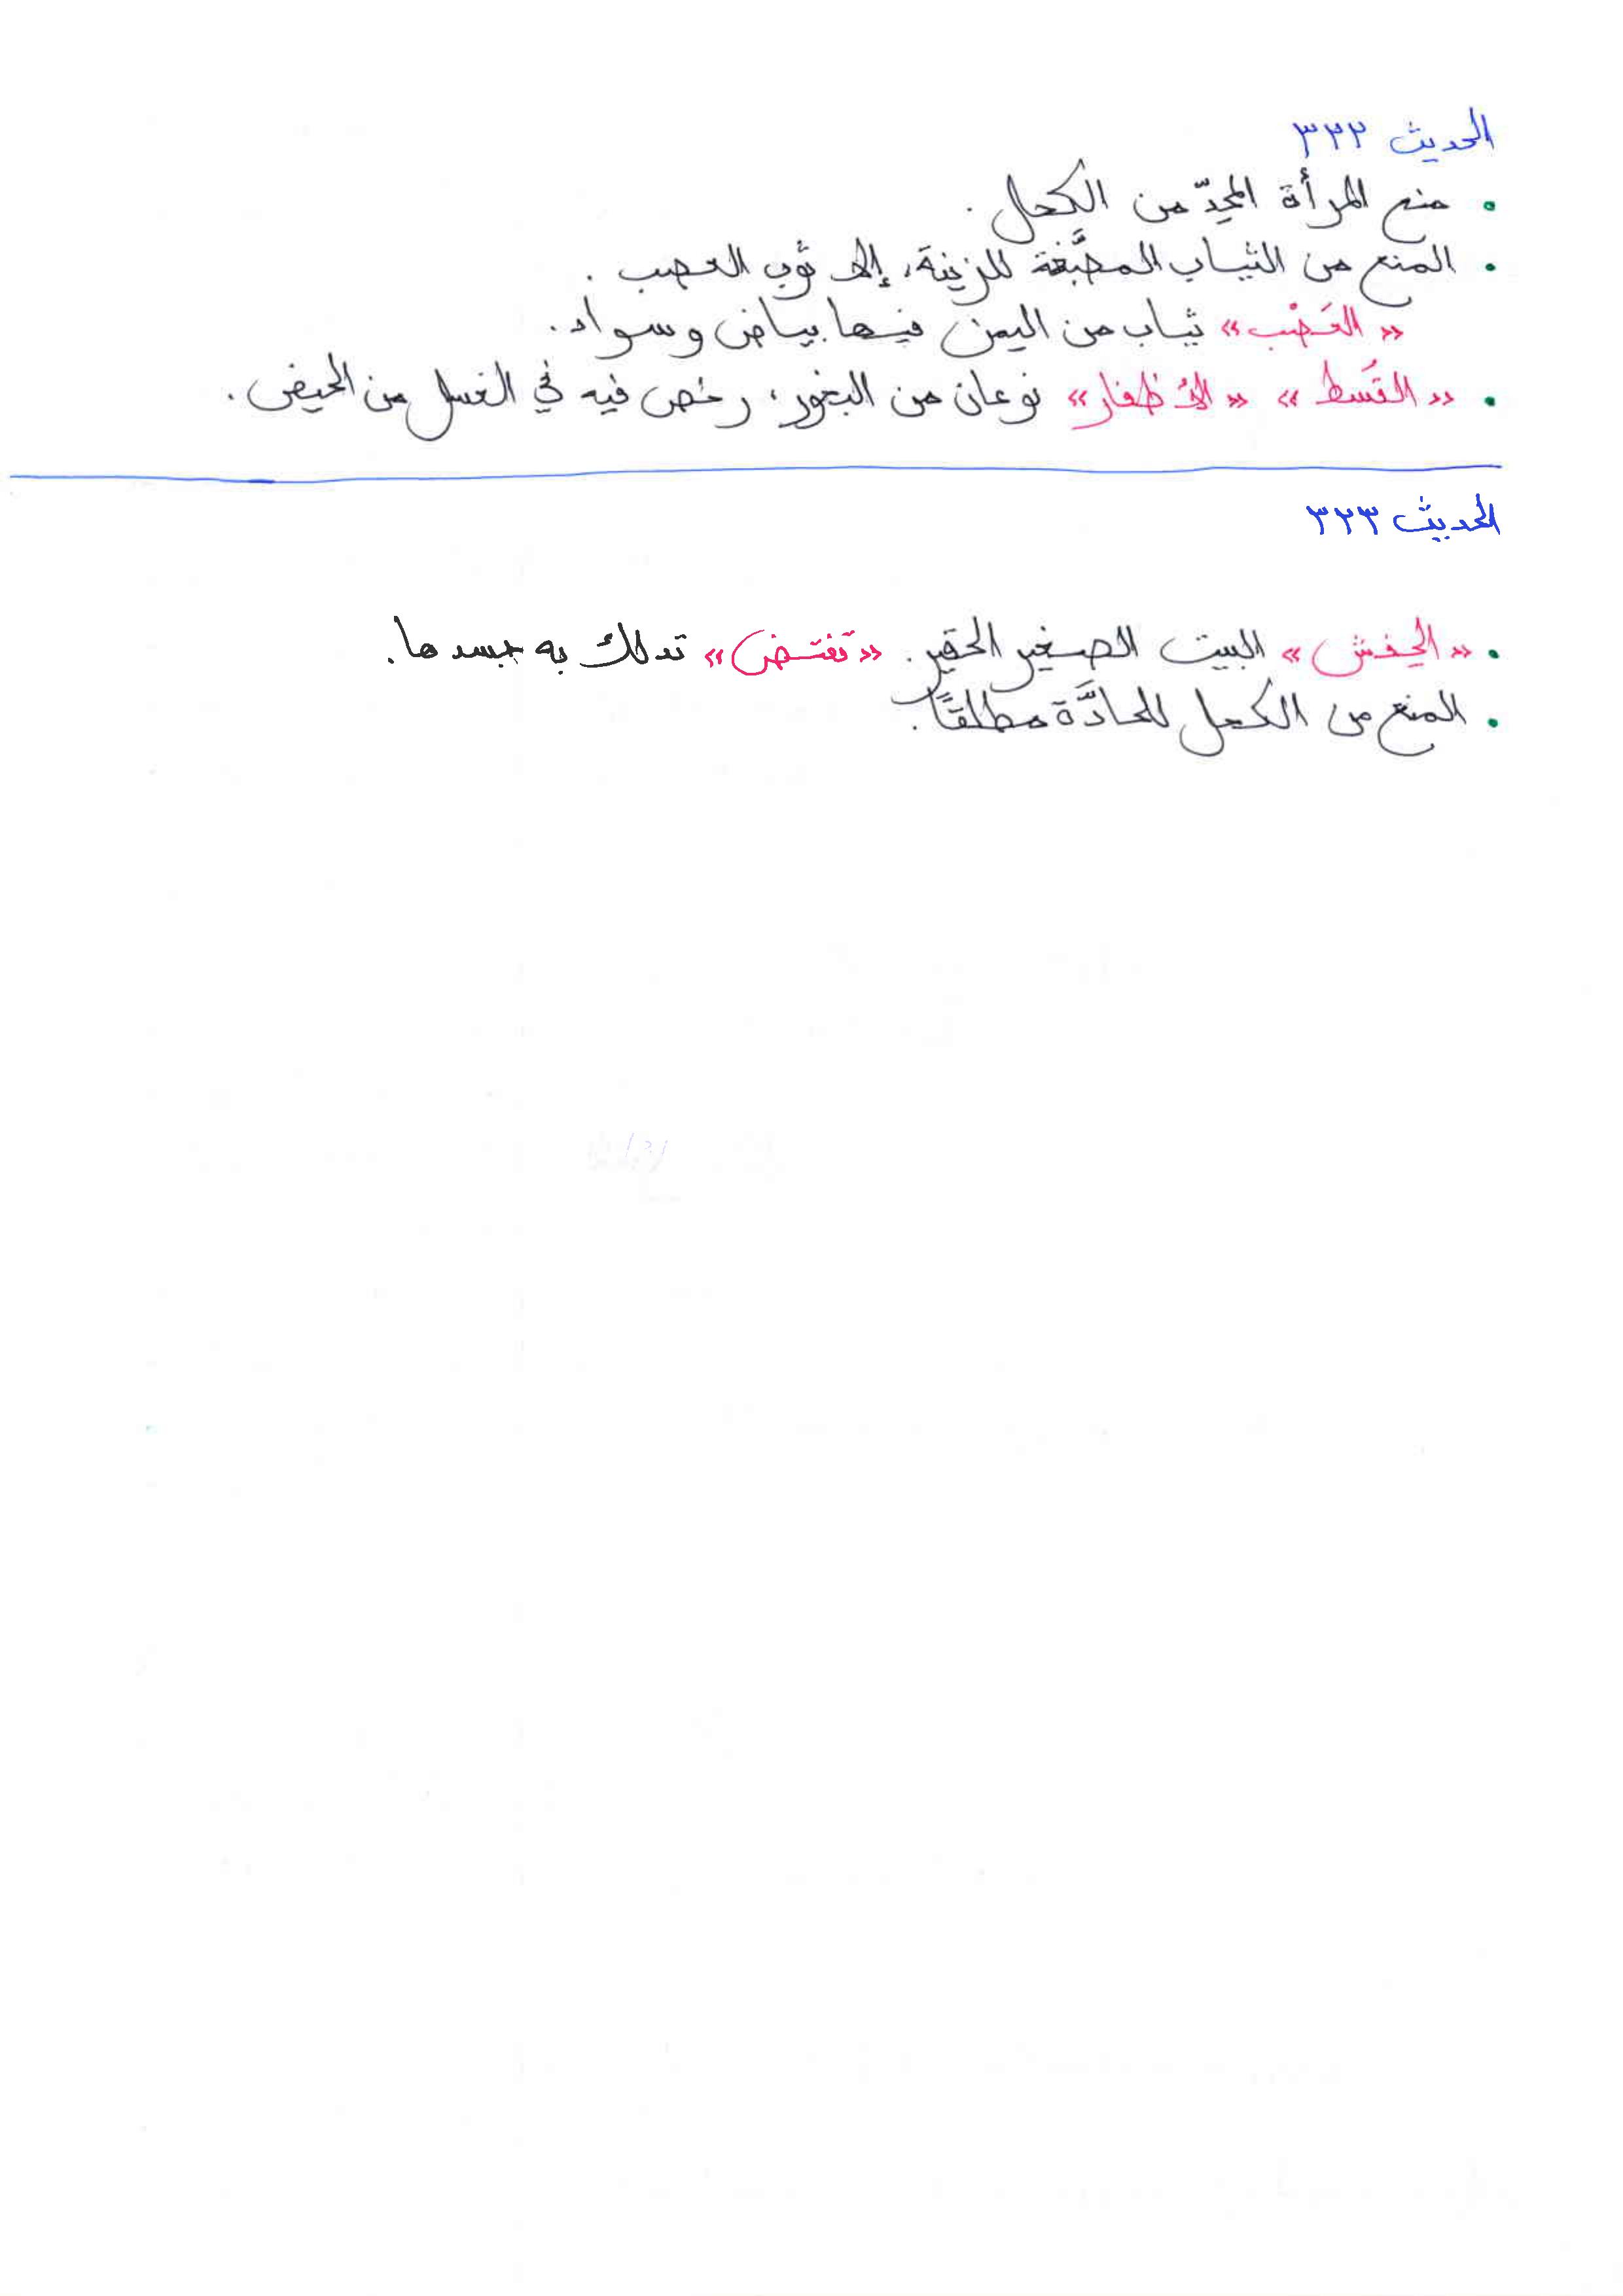 الحديث ٣٢٢
• منع المرأة المحِدّ من الكحل.
• المنع من الثياب المصبَّغة للزينة، إلا ثوب العصب.
«العَصْب» ثياب من اليمن فيها بياض وسواد.
• «القَسط» «الأظفار» نوعان من البخور، رخص فيه في الغسل من الحيض.
الحديث ٣٢٣
• «الحِفش» البيت الصغير الحقير. «تَفتض» تدلك به جسدها.
• المنع من الكحل للحادَّة مطلقًا.